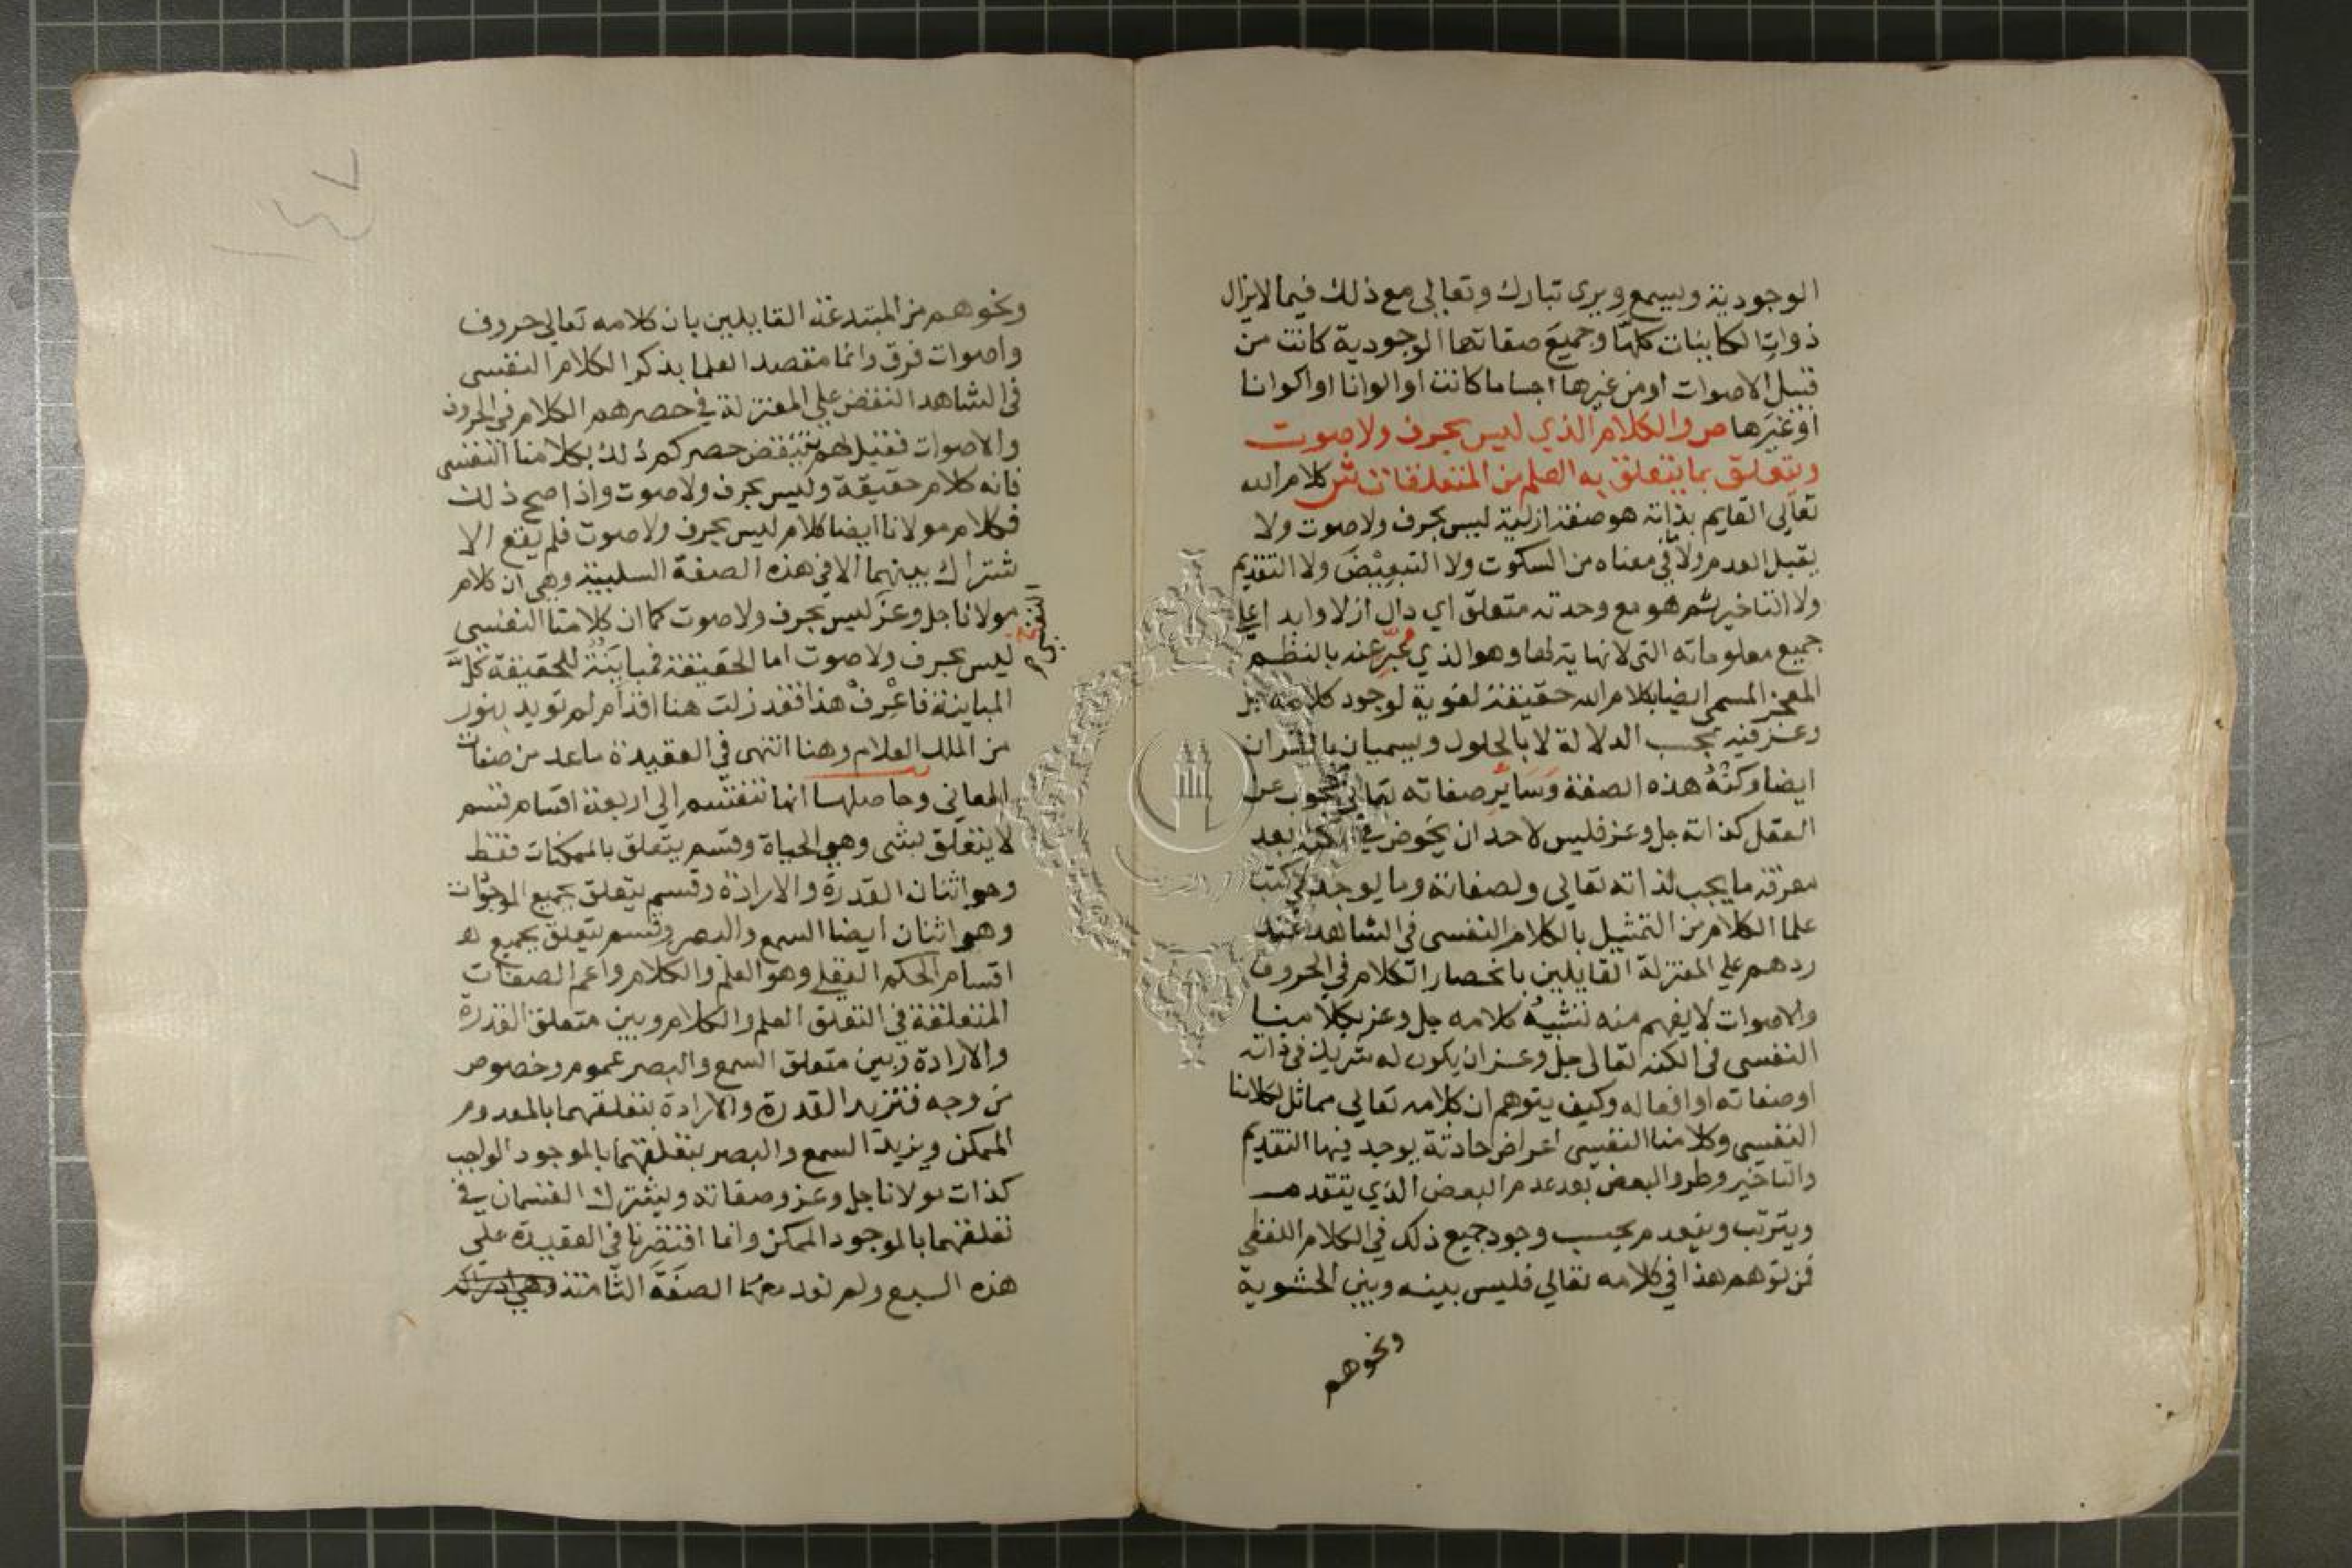 الوجودية ويسمع ويرى تبارك وتعالى مع ذلك فيما لا يزال
ذواتِ الكاينات كلهّا وجميعَ صفاتها الوجودية كانت من
قبيل الاصوات او من غيرها اجساما كانت او الوانا او اكوانا
او غيرَها ص والكلام الذي ليس بحرف ولا صوت
ويتعلق بما يتعلق به العلم من المتعلقات ش كلام الله
تعالى القايم بذاته هو صفة ازلية ليس بحرف ولا صوت ولا
يقبل العدم ولا في معناه من السكوت ولا التبعيض ولا التقديم
ولا التاخير ثم هو مع وحدته متعلق اي دال ازلا وابدا على
جميع معلوماته التي لا نهاية لها وهو الذي عُبّر عنه بالنظم
المعجز المسمى ايضا بكلام الله حقيقة لغوية لوجود كلامه جل
وعز فيه بحسب الدلالة لا بالحلول ويسميان بالقران
ايضا وكنْهُ هذه الصفة وَسَايُر صفاته تعالى محجوب عن
العقل كذاته جل وعز فليس لاحد ان يخوض في الكنه بعد
معرفة ما يجب لذاته تعالى ولصفاته وما يوجد في كتب
علما الكلام من التمثيل بالكلام النفسى في الشاهد عند
ردهم على المعتزلة القايلين بانحصار الكلام في الحروف
والاصوات لا يفهم منه تشبيهُ كلامه جل وعز بكلامنا
النفسى في الكنه تعالى جل وعز ان يكون له شريك في ذاته
او صفاته او افعاله وكيف يتوهم ان كلامه تعالى مماثل لكلامنا
النفسى وكلامنا النفسى اعراض حادثة يوجد فيها التقديم
والتاخير وطرو البعض بعد عدم البعض الذي يتقدم
ويترتب وينعدم بحسب وجود جميع ذلك في الكلام اللفظي
فمن توهم هذا في كلامه تعالى فليس بينه وبين الحشوية
ونحوهم
ونحوهم من المبتدعة القايلين بان كلامه تعالى حروف
واصوات فرق وانما مقصد العلما بذكر الكلام النفسى
في الشاهد النقض على المعتزلة في حصرهم الكلام في الحروف
والاصوات فقيل لهم ينتقض حصركم ذلك بكلامنا النفسى
فانه كلام حقيقة وليس بحرف ولا صوت واذا صح ذلك
فكلام مولانا ايضا كلام ليس بحرف ولا صوت فلم يقع الا
شتراك بينهما الا في هذه الصفة السلبية وهى ان كلام
مولانا جل وعز ليس بحرف ولا صوت كما ان كلامنا النفسى
ليس بحرف ولا صوت اما الحقيقة فمباينة للحقيقة كلَّ
المباينة فاعْرِفْ هذا فقد زلت هنا اقدام لم تويد بنور
من الملك العلام وهنا انتهى في العقيدة ما عد من صفات
المعاني وحاصلها انها تنقسم إلى اربعة اقسام قسم
لا يتعلق بشى وهى الحياة وقسم يتعلق بالممكنات فقط
وهو اثنان القدرة والارادة وقسم يتعلق بجميع الموجودات
وهو اثنان ايضا السمع والبصر وقسم يتعلق بجميع
اقسام الحكم العقلي وهو العلم والكلام واعم الصفات
المتعلقة في التعلق العلم والكلام وبين متعلق القدرة
والارادة وبين متعلق السمع والبصر عموم وخصوص
من وجه فتزيد القدرة والارادة بتعلقهما بالمعدوم
الممكن ويزيد السمع والبصر بتعلقهما بالموجود الواجب
كذات مولانا جل وعز وصفاته ويشترك القسمان في
تعلقهما بالموجود الممكن وانما اقتصرنا في العقيدة على
هذه السبع ولم نعد معها الصفَةَ الثَّامنة وهي ادراكه